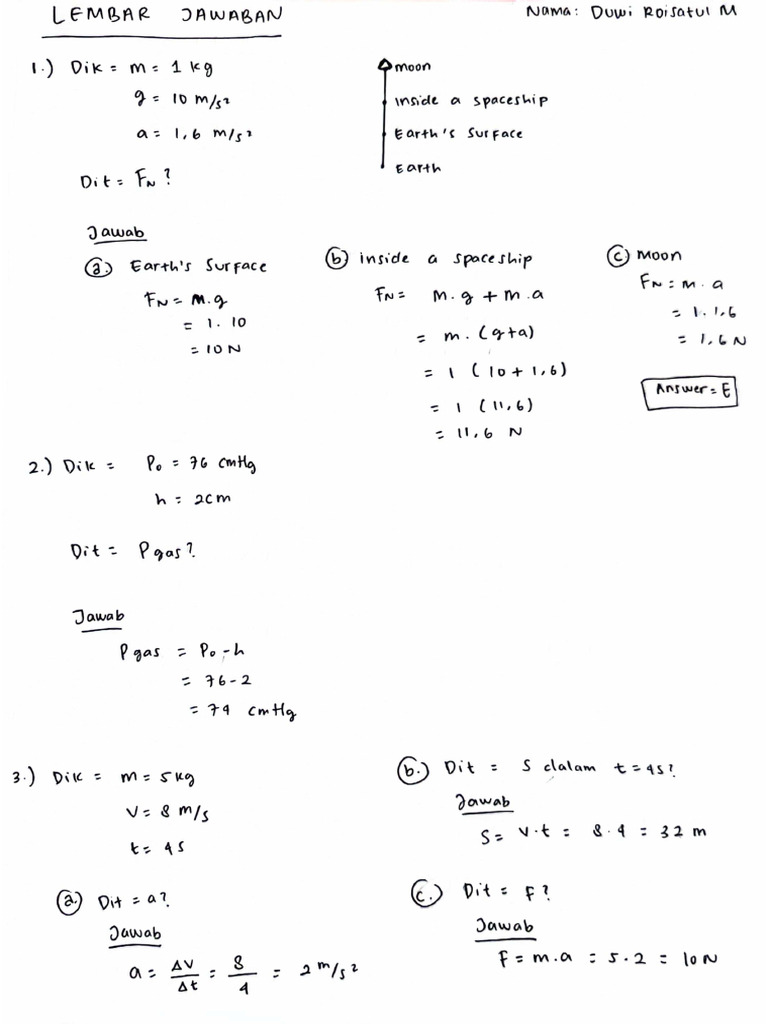 LEMBAR JAWABAN
Nama: Duwi Roisatul M
1.) Dik = m = 1 kg
g = 10 m/s²
a = 1,6 m/s²
Dit = FN?
moon
inside a spaceship
Earth's Surface
Earth
Jawab
a. Earth's Surface
FN = m.g
= 1. 10
= 10 N
b inside a spaceship
FN = m.g + m.a
= m. (g+a)
= 1 (10 + 1,6)
= 1 (11,6)
= 11,6 N
c. Moon
FN = m. a
= 1. 1,6
= 1,6 N
Answer = E
2.) Dik = Po = 76 cmHg
h = 2cm
Dit = P gas?
Jawab
P gas = Po - h
= 76 - 2
= 74 cmHg
3.) Dik = m = 5 kg
V = 8 m/s
t = 4s
a. Dit = a?
Jawab
a = ΔV/Δt = 8/4 = 2 m/s²
b. Dit = S dalam t = 4s?
Jawab
S = v.t = 8.4 = 32 m
c. Dit = F?
Jawab
F = m.a = 5.2 = 10N